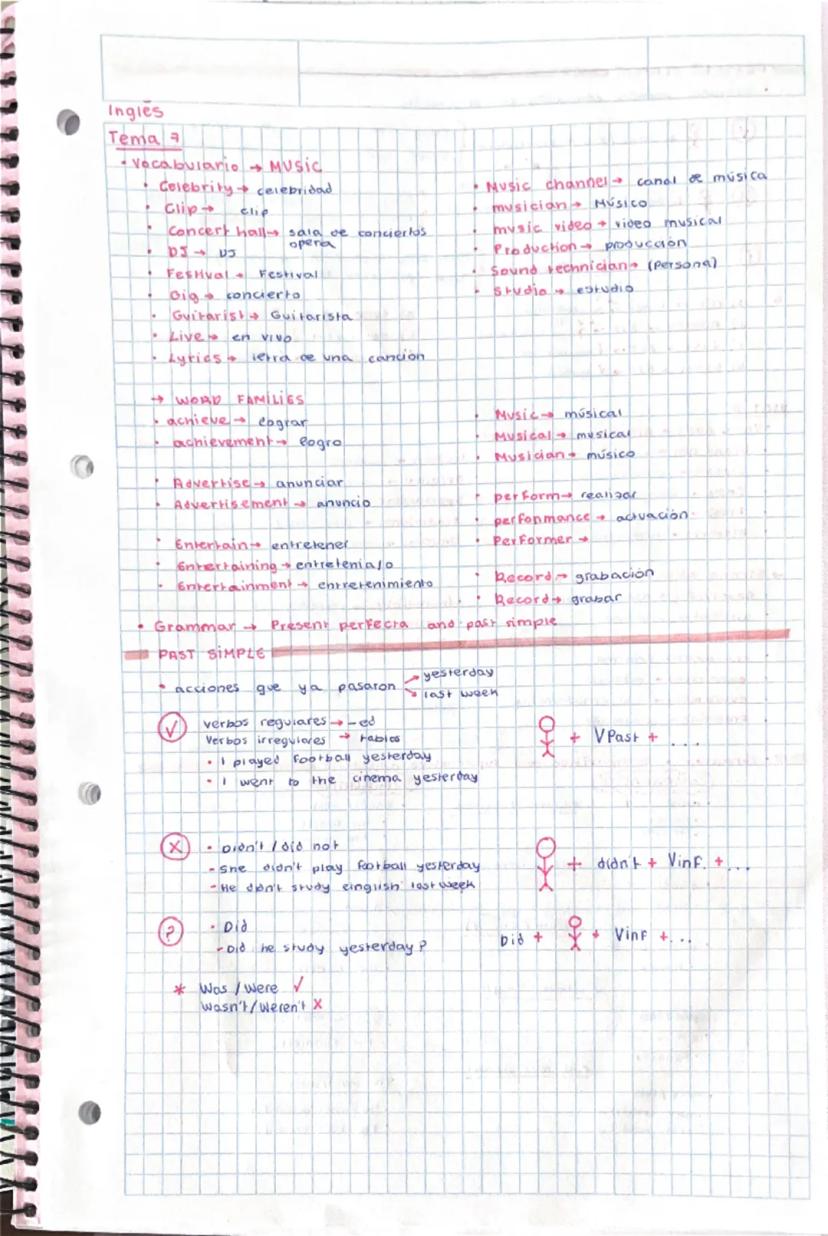 Inglés
Tema 7
• Vocabulario → MUSIC
• Celebrity → celebridad
• Clip → clip
• Concert hall → sala de conciertos
opera
• DJ → DJ
• Festival → Festival
• Gig → concierto
• Guitarist → Guitarista
• Live → en vivo
• Lyrics → letra de una canción
• Music channel → canal de música
• musician → Músico
• music video → video musical
• Production → producción
• Sound technician → (persona)
• Studio → estudio
→ WORD FAMILIES
• achieve → lograr
• achievement → logro
• Advertise → anunciar
• Advertisement → anuncio
• Entertain → entretener
• Entertaining → entretenia/o
• Entertainment → entretenimiento
• Music → músical
• Musical → musical
• Musician → músico
• perform → realizar
• perfonmance → actuación
• Performer →
• Record → grabación
• Record → grabar
• Grammar → Present perfecta and past simple
PAST SIMPLE
• acciones que ya pasaron → yesterday
→ last week
✓ verbos regulares → -ed
Verbos irregulares → tablas
• I played football yesterday
• I went to the cinema yesterday
+ VPast + ...
X • Didn't / did not
- She didn't play football yesterday
- He didn't study einglish last week
+ didn't + Vinf. + ...
? • Did
- Did he study yesterday?
Did + + Vinf + ...
* Was / Were ✓
Wasn't / Weren't X